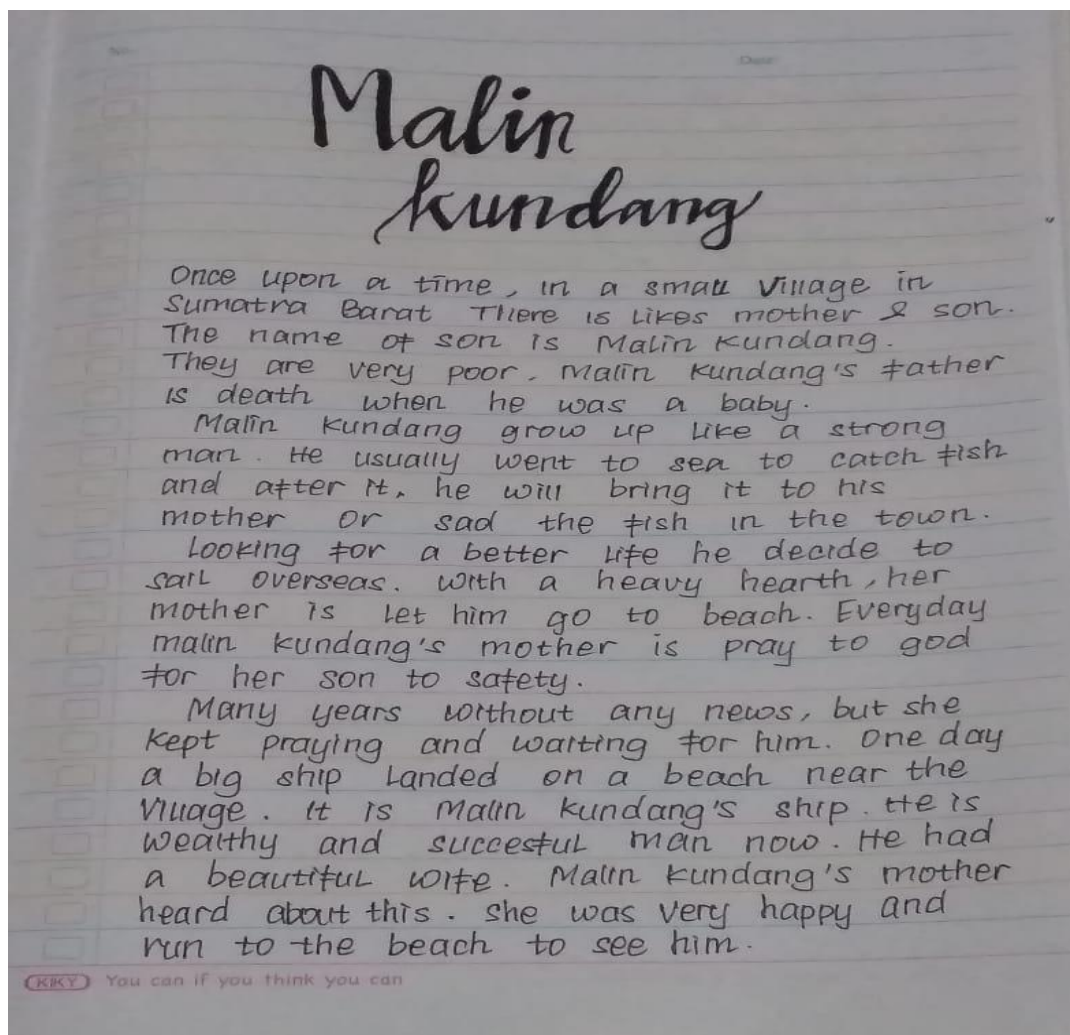 No.
Date
Malin
kundang
Once upon a time, in a small Village in
Sumatra Barat There is Likes mother & son.
The name of son is Malin Kundang.
They are very poor. Malin Kundang's father
is death when he was a baby.
Malin Kundang grow up Like a strong
man. He usually went to sea to catch fish
and after it, he will bring it to his
mother or sad the fish in the town.
Looking for a better Life he decide to
sail overseas. With a heavy hearth, her
mother is Let him go to beach. Everyday
malin kundang's mother is pray to god
for her son to safety.
Many years without any news, but she
kept praying and waiting for him. One day
a big ship Landed on a beach near the
Village. It is Malin kundang's ship. He is
wealthy and succesful man now. He had
a beautiful wife. Malin kundang's mother
heard about this. She was very happy and
run to the beach to see him.
KIKY You can if you think you can